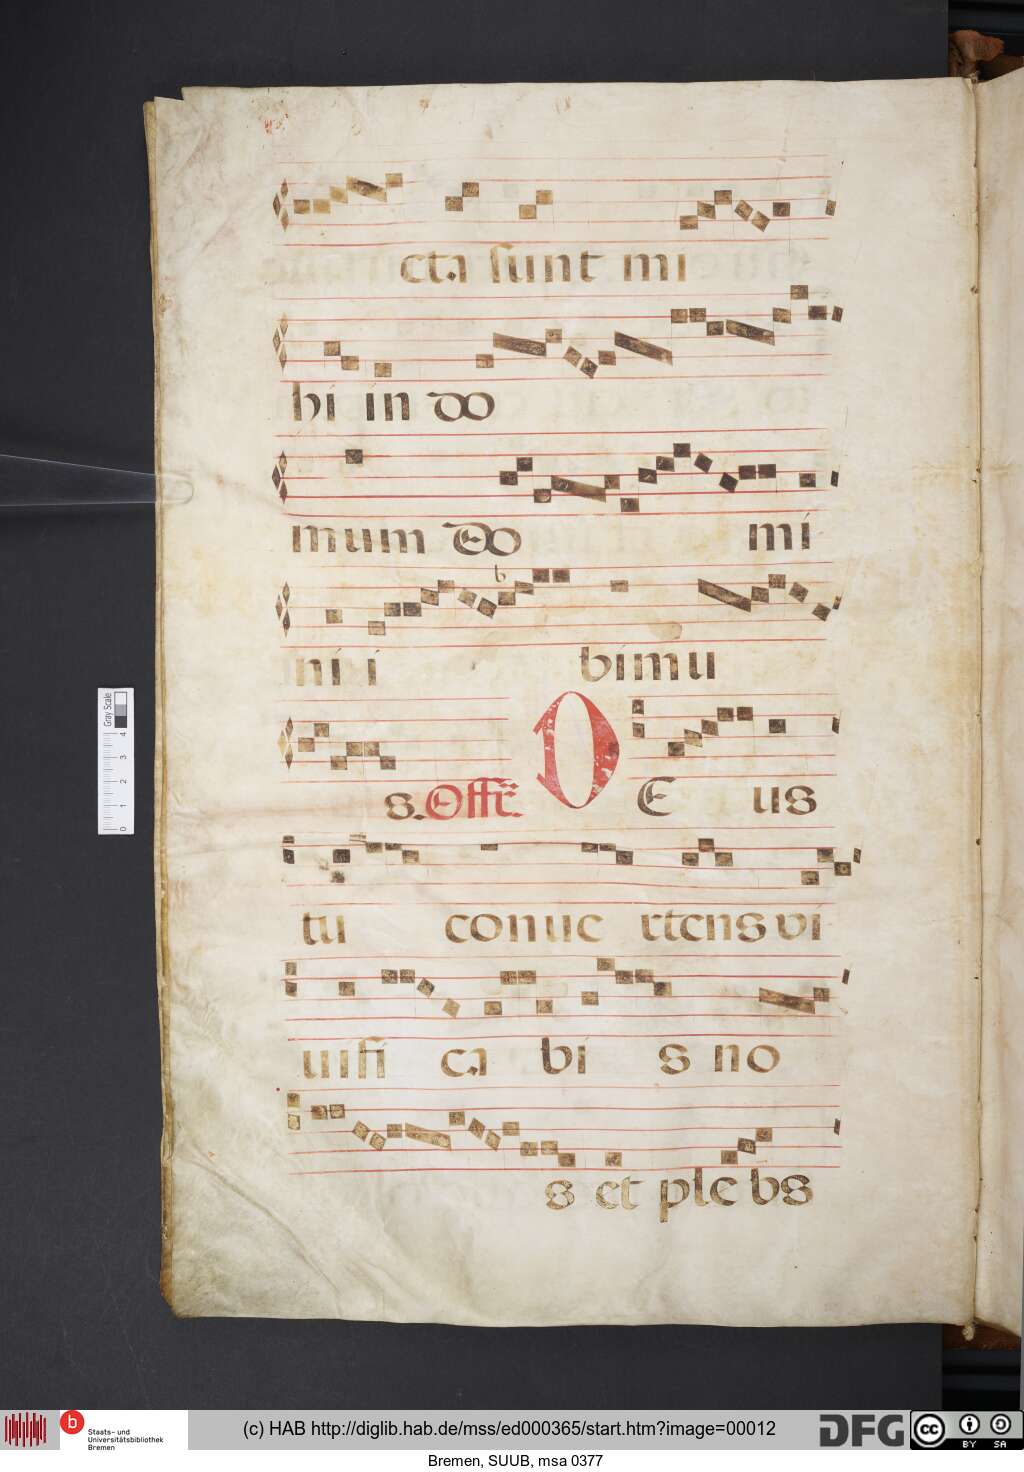 cta sunt mi
hi in do
mum do mi
b
ni i bimu
s. Offc. D E us
tu conue rtens vi
uifi ca bi s no
s et ple bs
Gray Scale
4
3
2
1
0
b Staats- und Universitätsbibliothek Bremen
(c) HAB http://diglib.hab.de/mss/ed000365/start.htm?image=00012
DFG
cc BY SA
Bremen, SUUB, msa 0377